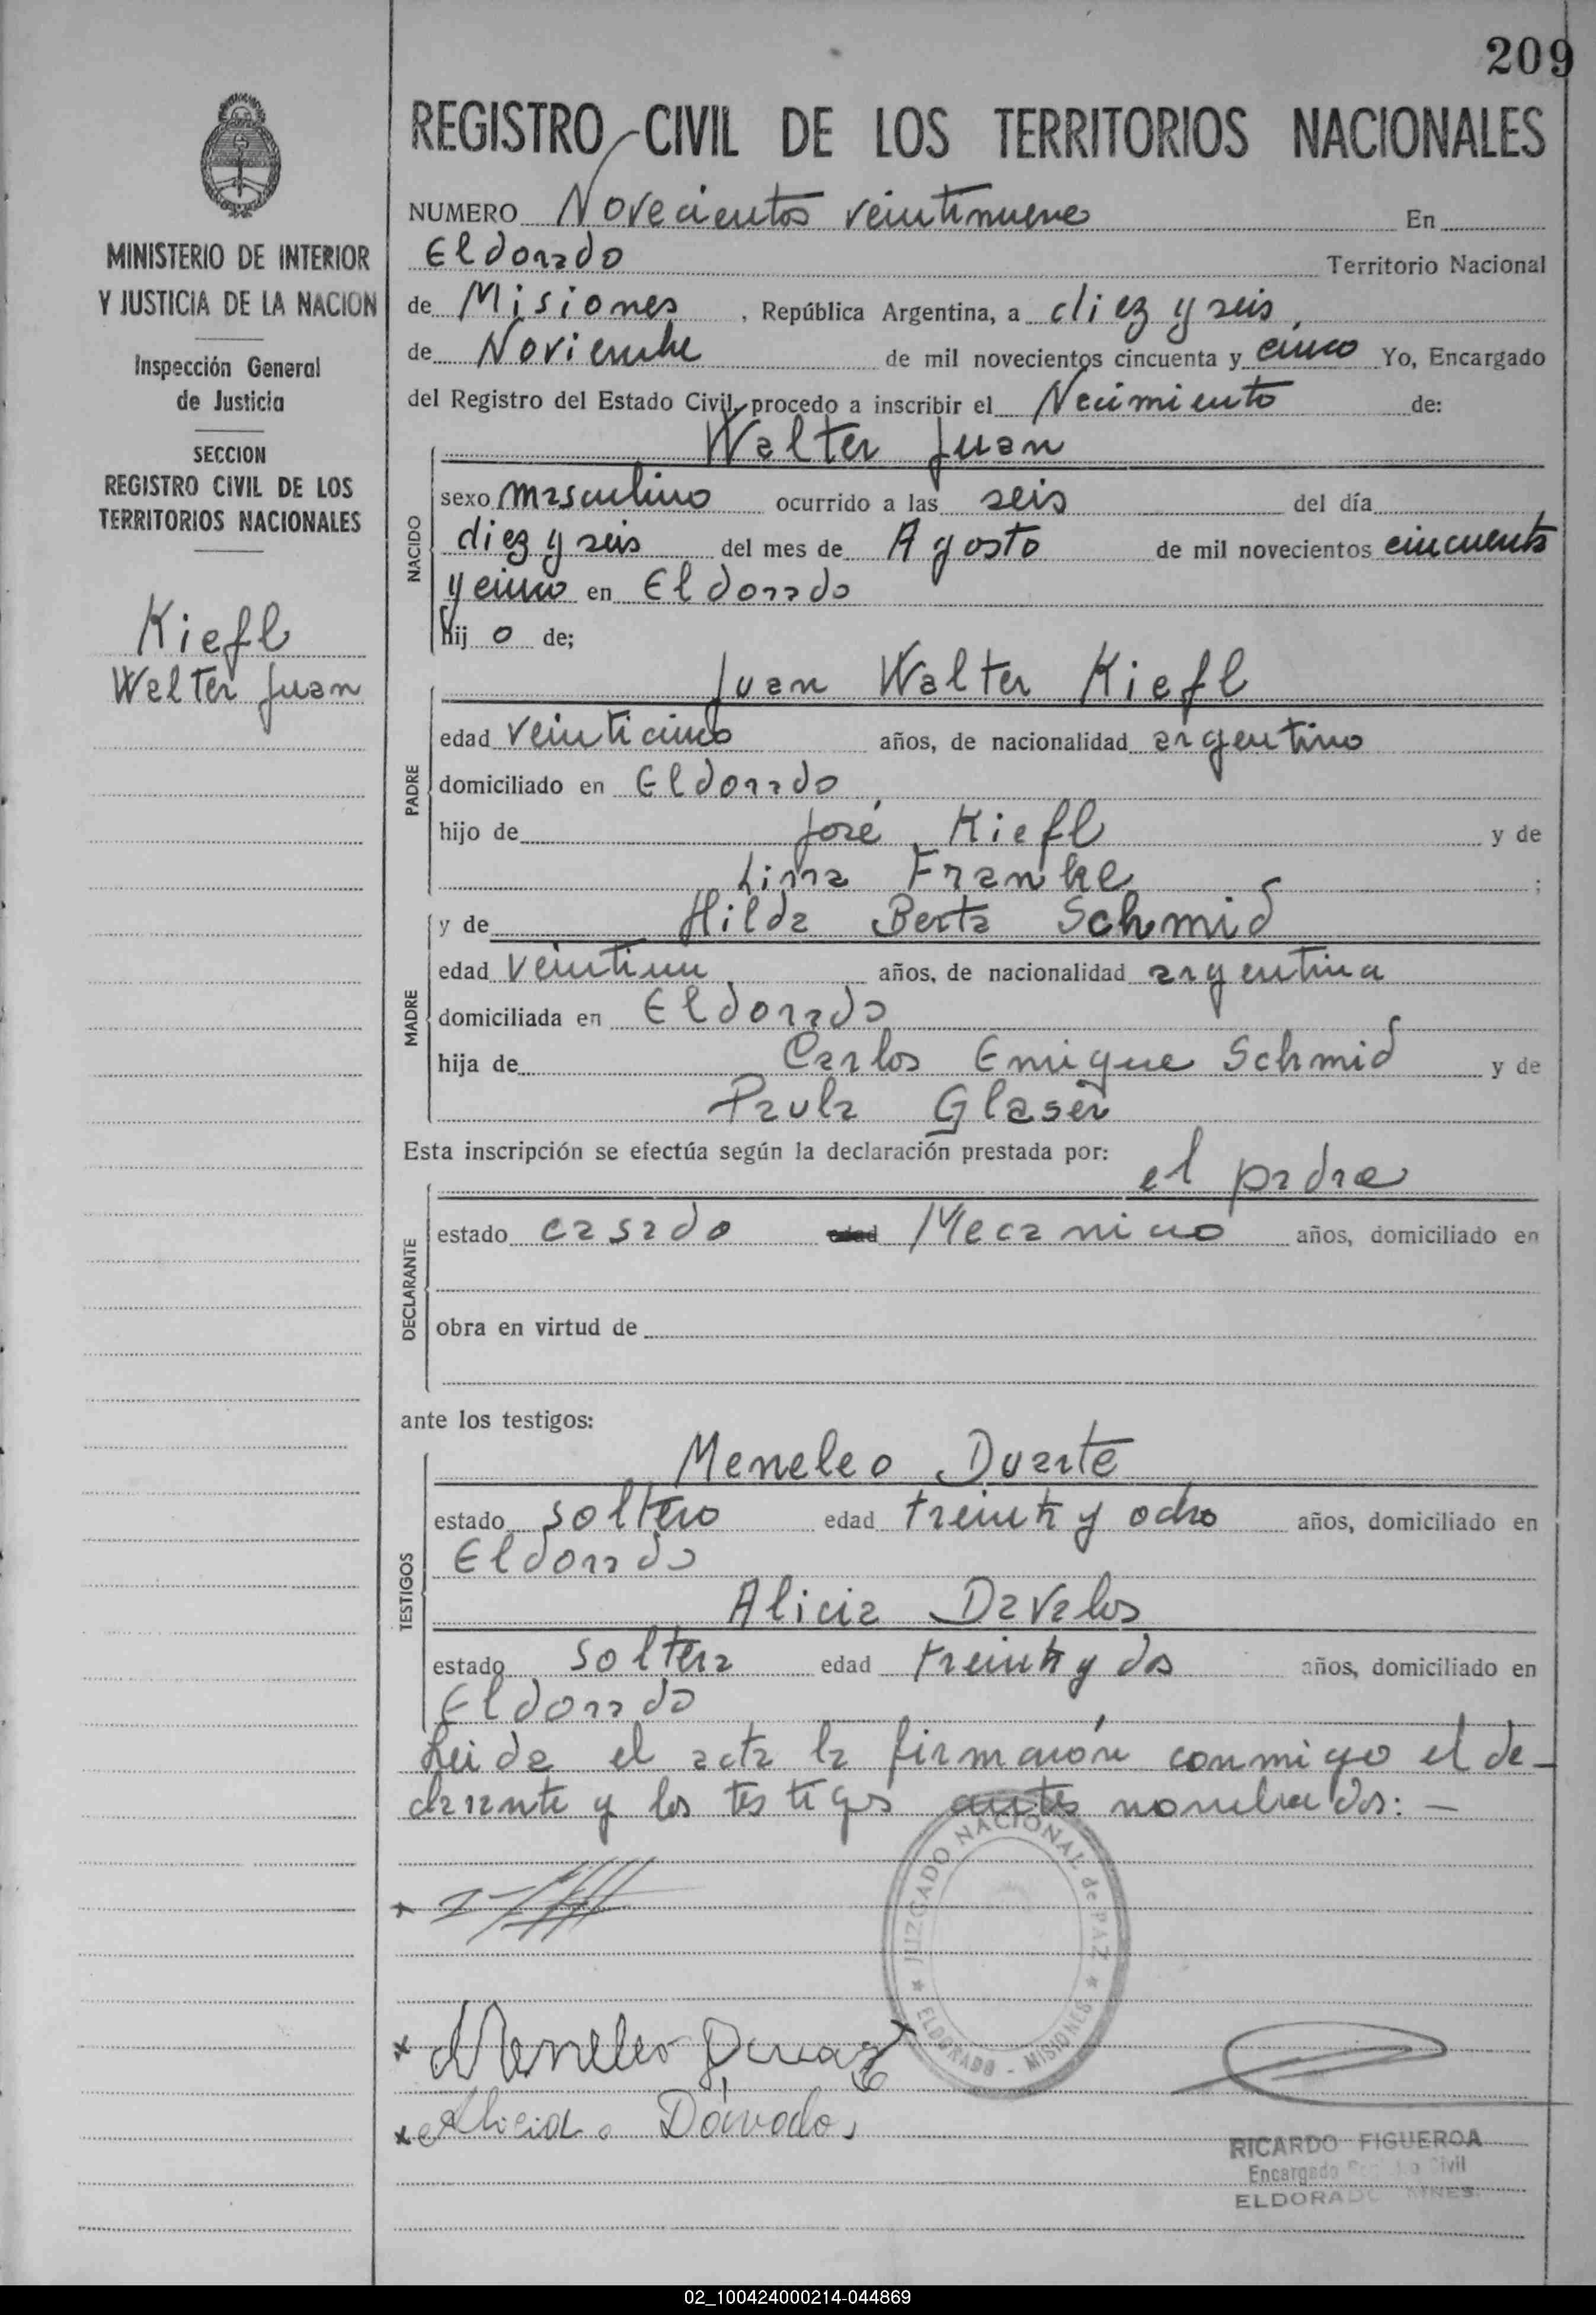 209
REGISTRO CIVIL DE LOS TERRITORIOS NACIONALES
MINISTERIO DE INTERIOR
Y JUSTICIA DE LA NACION
Inspección General
de Justicia
SECCION
REGISTRO CIVIL DE LOS
TERRITORIOS NACIONALES
Kiefl
Walter Juan
NUMERO Novecientos veintinueve En
Eldorado Territorio Nacional
de Misiones, República Argentina, a diez y seis,
de Noviembre de mil novecientos cincuenta y cinco Yo, Encargado
del Registro del Estado Civil, procedo a inscribir el Nacimiento de:
NACIDO
Walter Juan
sexo masculino ocurrido a las seis del día
diez y seis del mes de Agosto de mil novecientos cincuenta
y cinco en Eldorado
hij o de;
PADRE
Juan Walter Kiefl
edad veinticinco años, de nacionalidad argentino
domiciliado en Eldorado,
hijo de José Kiefl y de
Lina Franke;
MADRE
y de Hilda Berta Schmid
edad veintiun años, de nacionalidad argentina
domiciliada en Eldorado
hija de Carlos Enrique Schmid y de
Paula Glaser
Esta inscripción se efectúa según la declaración prestada por:
DECLARANTE
el padre
estado casado edad Mecanico años, domiciliado en
obra en virtud de
ante los testigos:
TESTIGOS
Meneleo Duarte
estado soltero edad treinta y ocho años, domiciliado en
Eldorado
Alicia Davalos
estado soltera edad treinta y dos años, domiciliado en
Eldorado
Leida el acta la firmaron conmigo el de-
clarante y los testigos antes nombrados: -
JUZGADO NACIONAL de PAZ
ELDORADO - MISIONES
Meneleo
Alicia
RICARDO FIGUEROA
Encargado Registro Civil
ELDORADO
02_100424000214-044869